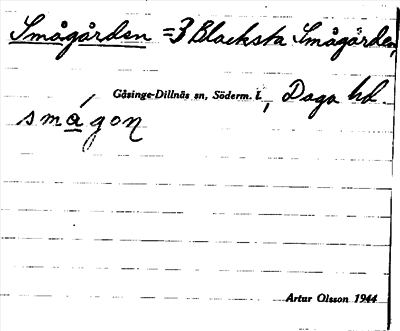 Smågården = 3 Blacksta Smågården,
Gåsinge-Dillnäs sn, Söderm. l., Daga hd
smágon
Artur Olsson 1944